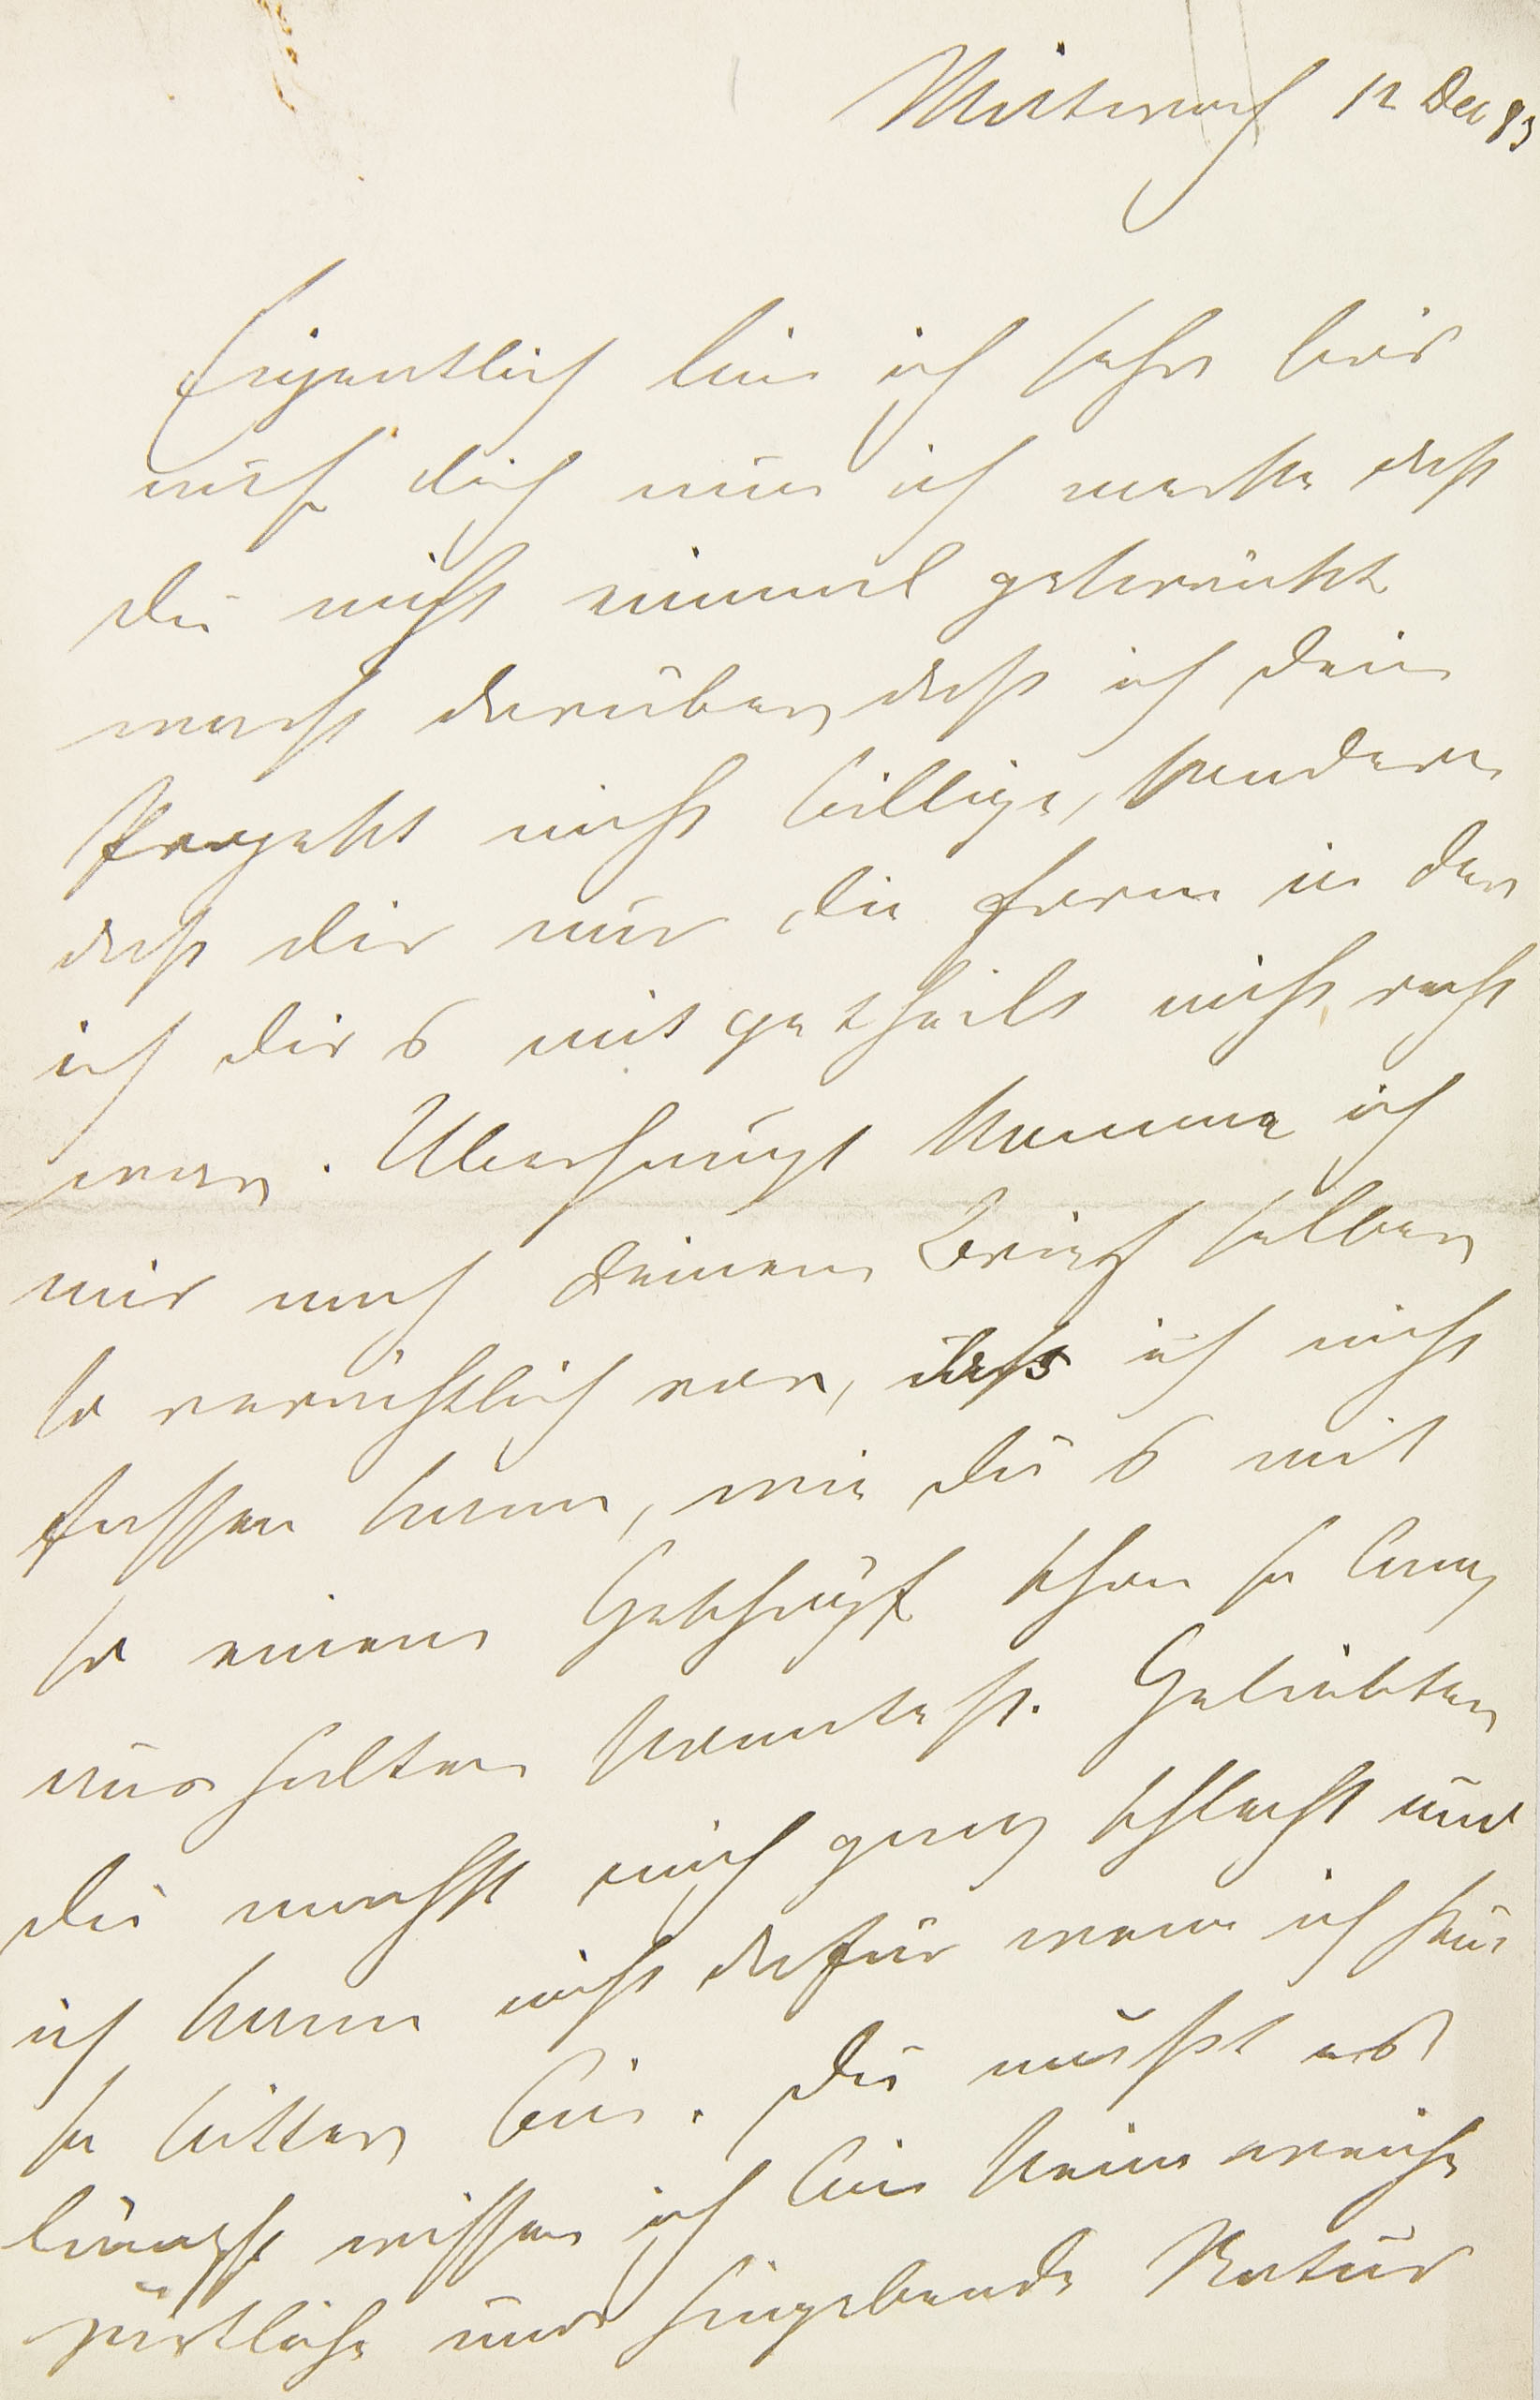 Mittwoch 12 Dec 83
Eigentlich bin ich sehr bös
auf dich nun ich merke daß
du nicht einmal gekränkt
warst darüber, daß ich dein
Projekt nicht billige, sondern
daß dir nur die Form in der
ich dir's mitgetheilt nicht recht
war. Überhaupt komme ich
mir nach deinem Brief selber
so verächtlich vor, daß ich nicht
fassen kann, wie du's mit
so einem Geschöpf schon so lang
aushalten konntest. Geliebter
du machst mich ganz schlecht und
ich kann nicht dafür wenn ich heut
so bitter bin. Du mußt es
längst wissen ich bin keine weiche
zärtliche und hingebende Natur